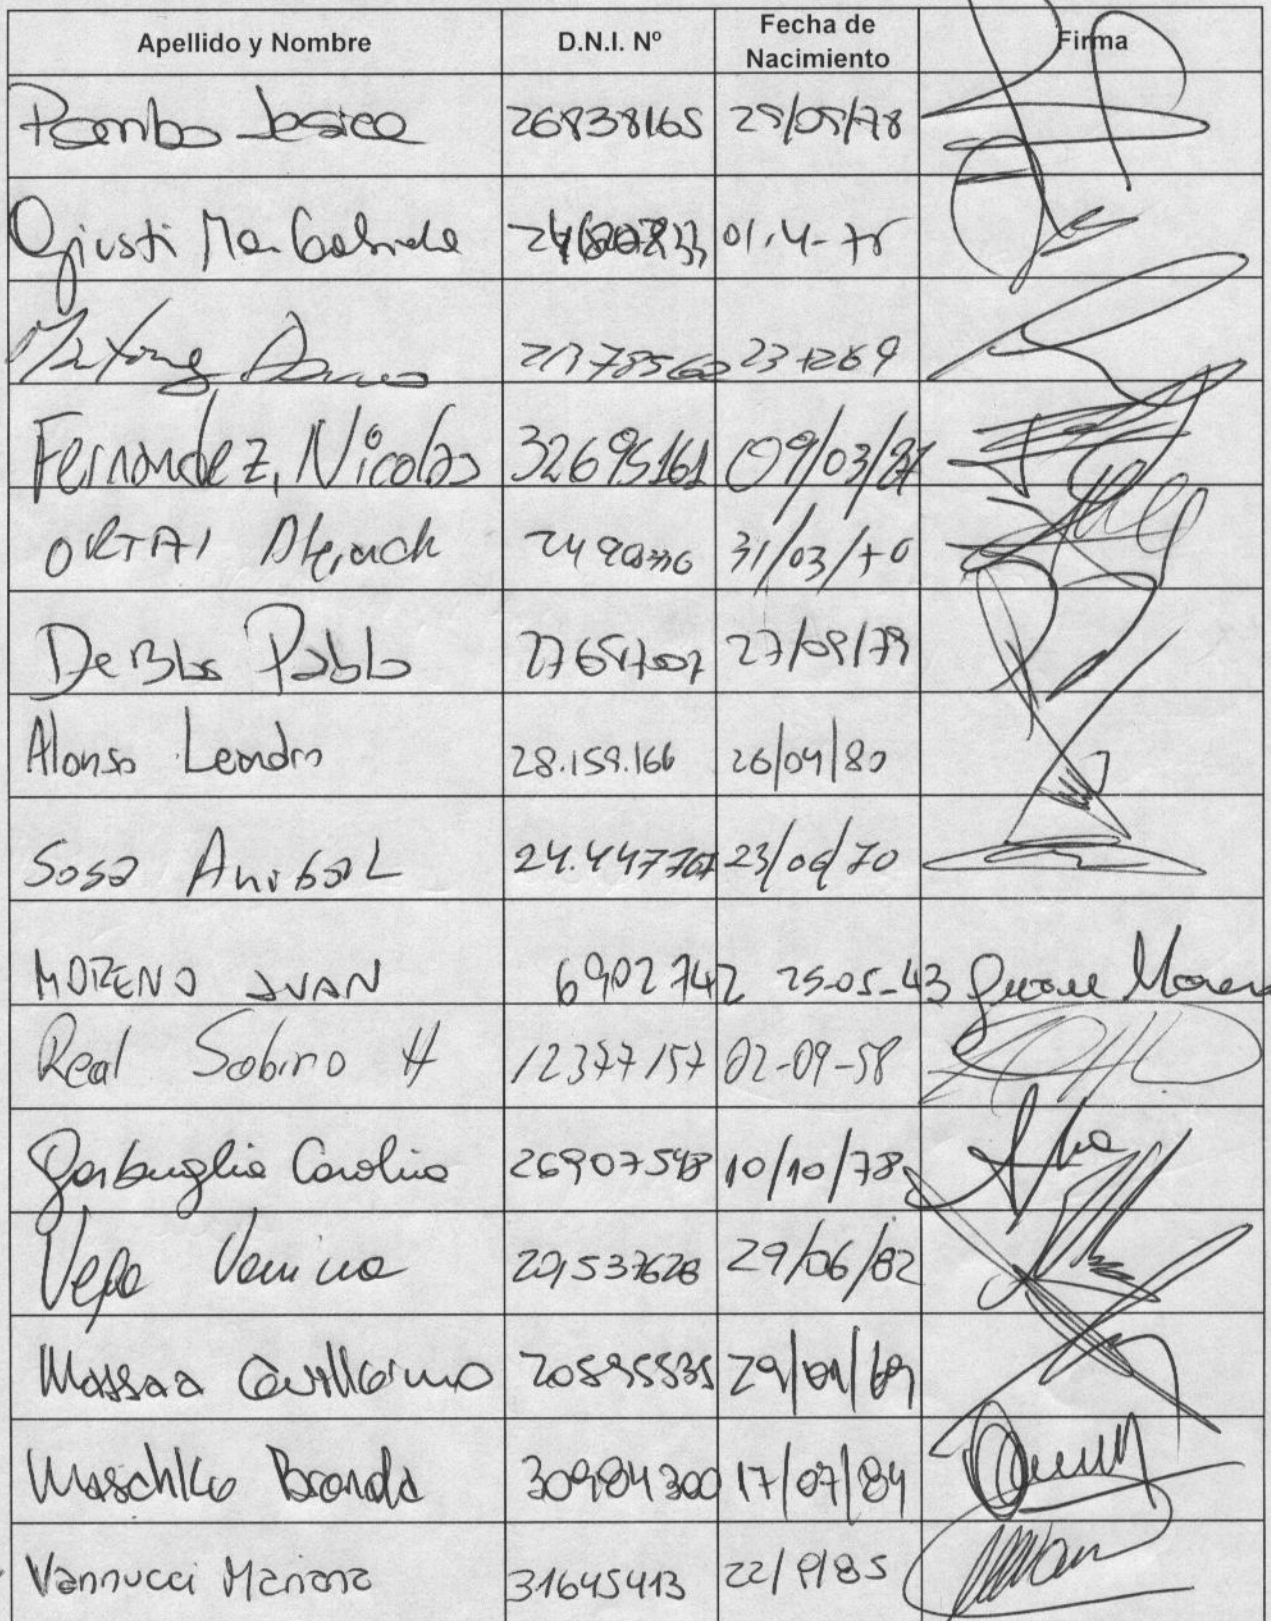 Apellido y Nombre D.N.I. Nº Fecha de Nacimiento Firma
Pombo Jesica 26838165
Giusti Ma. Gabriela 01.4-75
23 12 69
Fernandez, Nicolas 32695161 09/03/87
31/03/70
De Blas Pablo 27/09/79
Alonso Leandro 28.159.166 26/04/80
Sosa AnibaL 24.447767 23/06/70
MORENO JUAN 6902742 25-05-43 Juan Moreno
Real Sabino H 12377157 02-09-58
Garbuglia Carolina 26907548 10/10/78
Vega Vanina 29,537628 29/06/82
Massaa Guillermo 20595535 29/01/69
Maschko Brenda 30984300 17/07/84
Vannucci Mariana 31645413 22/8/85